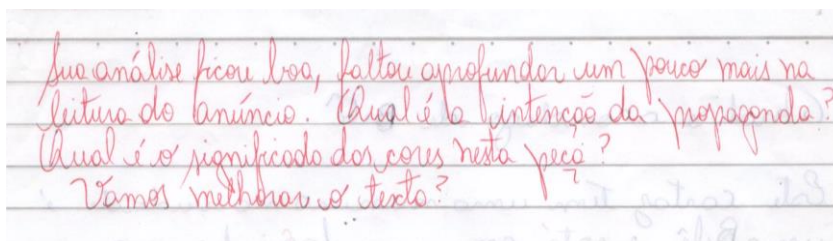 Sua análise ficou boa, faltou aprofundar um pouco mais na
leitura do anúncio. Qual é a intenção da propaganda?
Qual é o significado das cores nesta peça?
Vamos melhorar o texto?